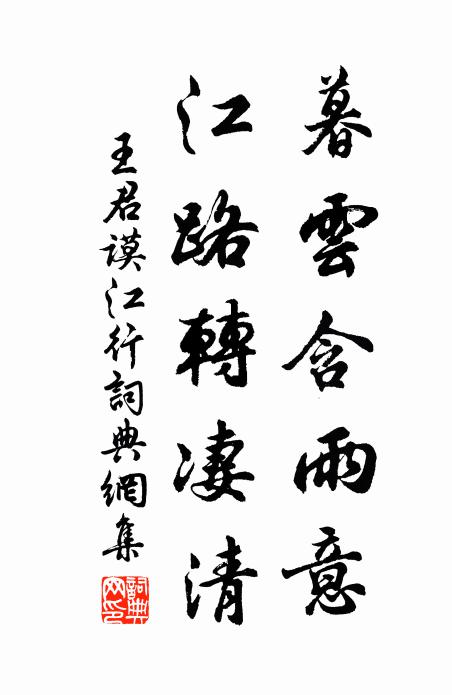 暮雲含雨意
江路轉凄清
王君謨江行詞典網集
詞典網印